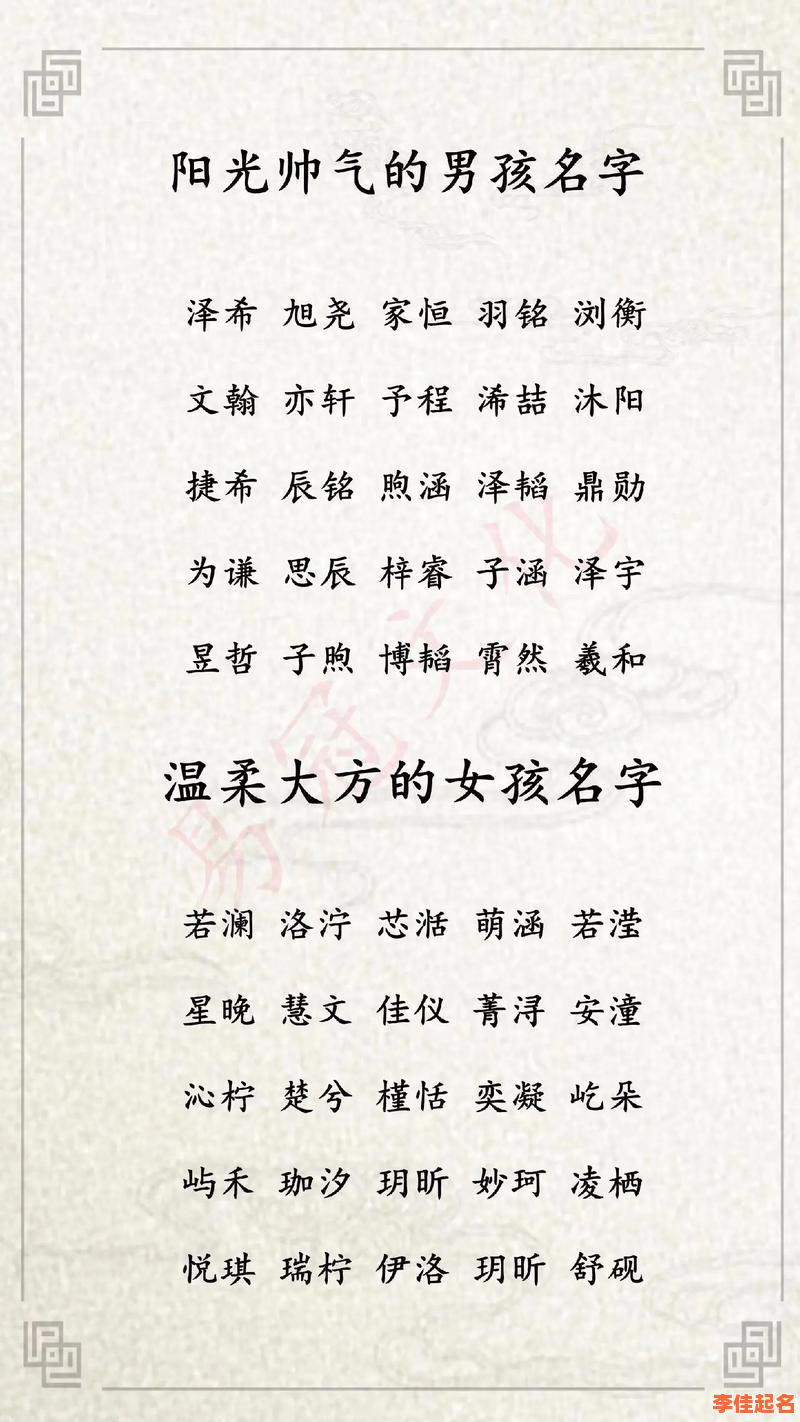 阳光帅气的男孩名字
泽希 旭尧 家恒 羽铭 浏衡
文翰 亦轩 予程 浠喆 沐阳
捷希 辰铭 煦涵 泽韬 鼎勋
为谦 思辰 梓睿 子涵 泽宇
昱哲 子煦 博韬 霄然 羲和
易冠文化
温柔大方的女孩名字
若澜 洛泞 芯湉 萌涵 若滢
星晚 慧文 佳仪 菁浔 安潼
沁柠 楚兮 槿恬 奕凝 屹朵
屿禾 珈汐 玥昕 妙珂 凌栖
悦琪 瑞柠 伊洛 玥昕 舒砚
李佳起名